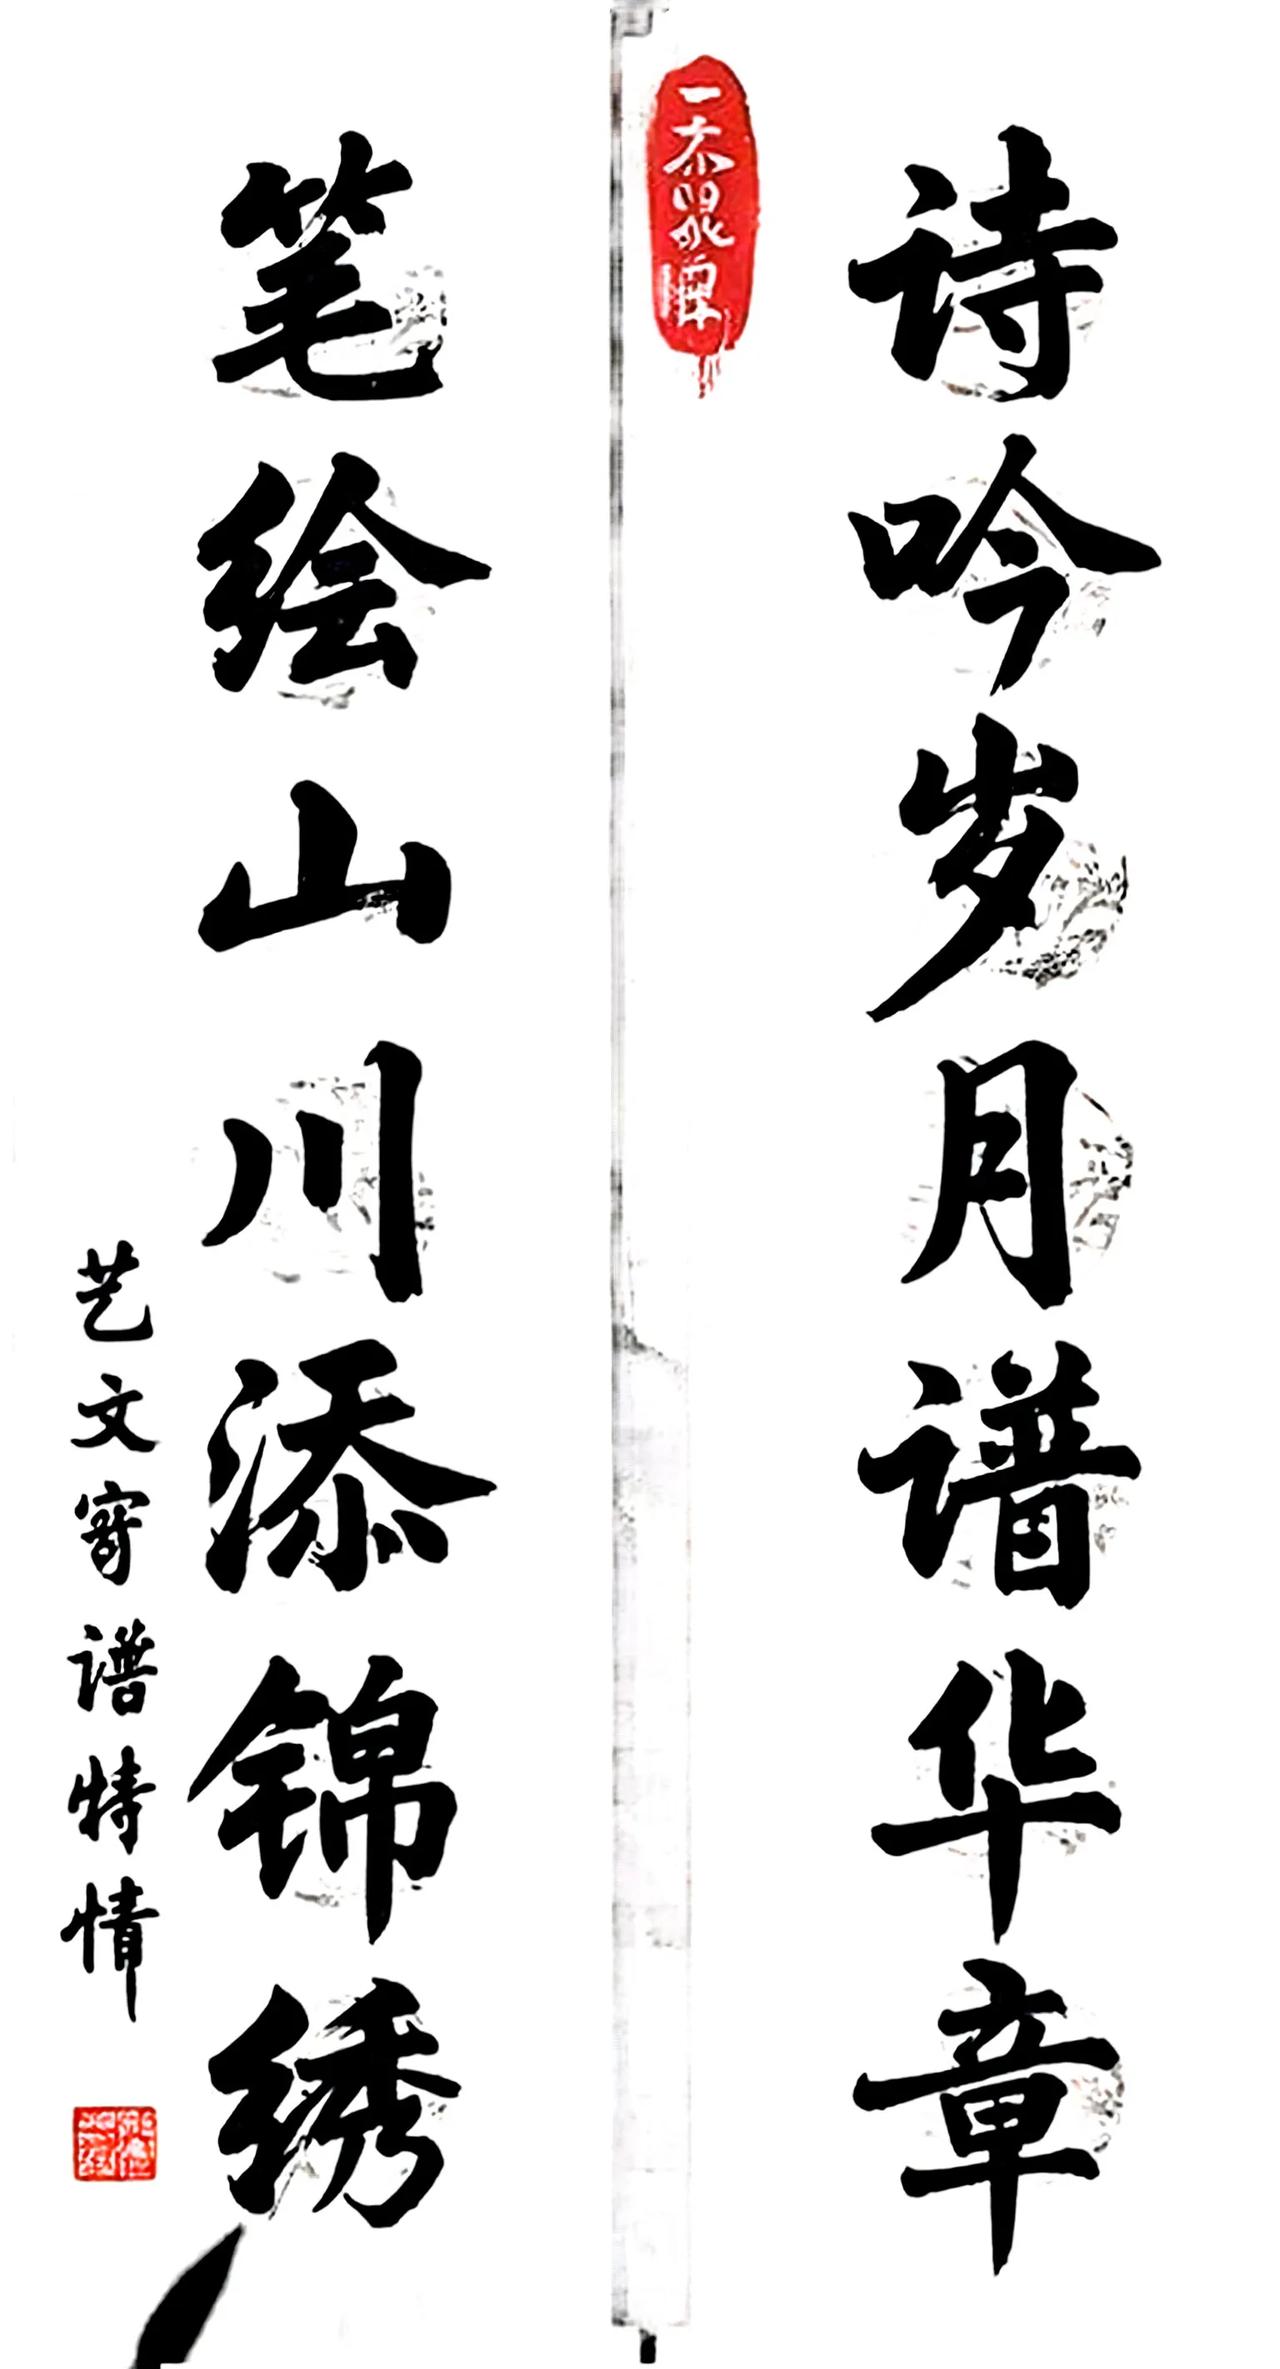 诗吟岁月谱华章
笔绘山川添锦绣
艺文寄谱特情